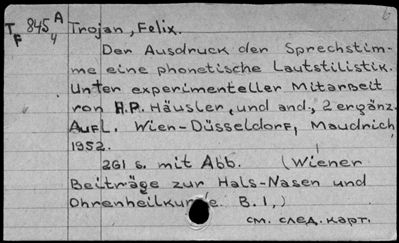 Tf 845/4 A Trojan, Felix.
Der Ausdruck der Sprechstim-
me eine phonetische Lautstilistik.
Unter experimenteller Mitarbeit
von H.P. Häusler, und and., 2 ergänz.
Aufl. Wien-Düsseldorf, Maudrich
1952.
261 s. mit Abb. (Wiener
Beiträge zur Hals-Nasen und
Ohrenheilkunde. B. 1,)
см. след. карт.